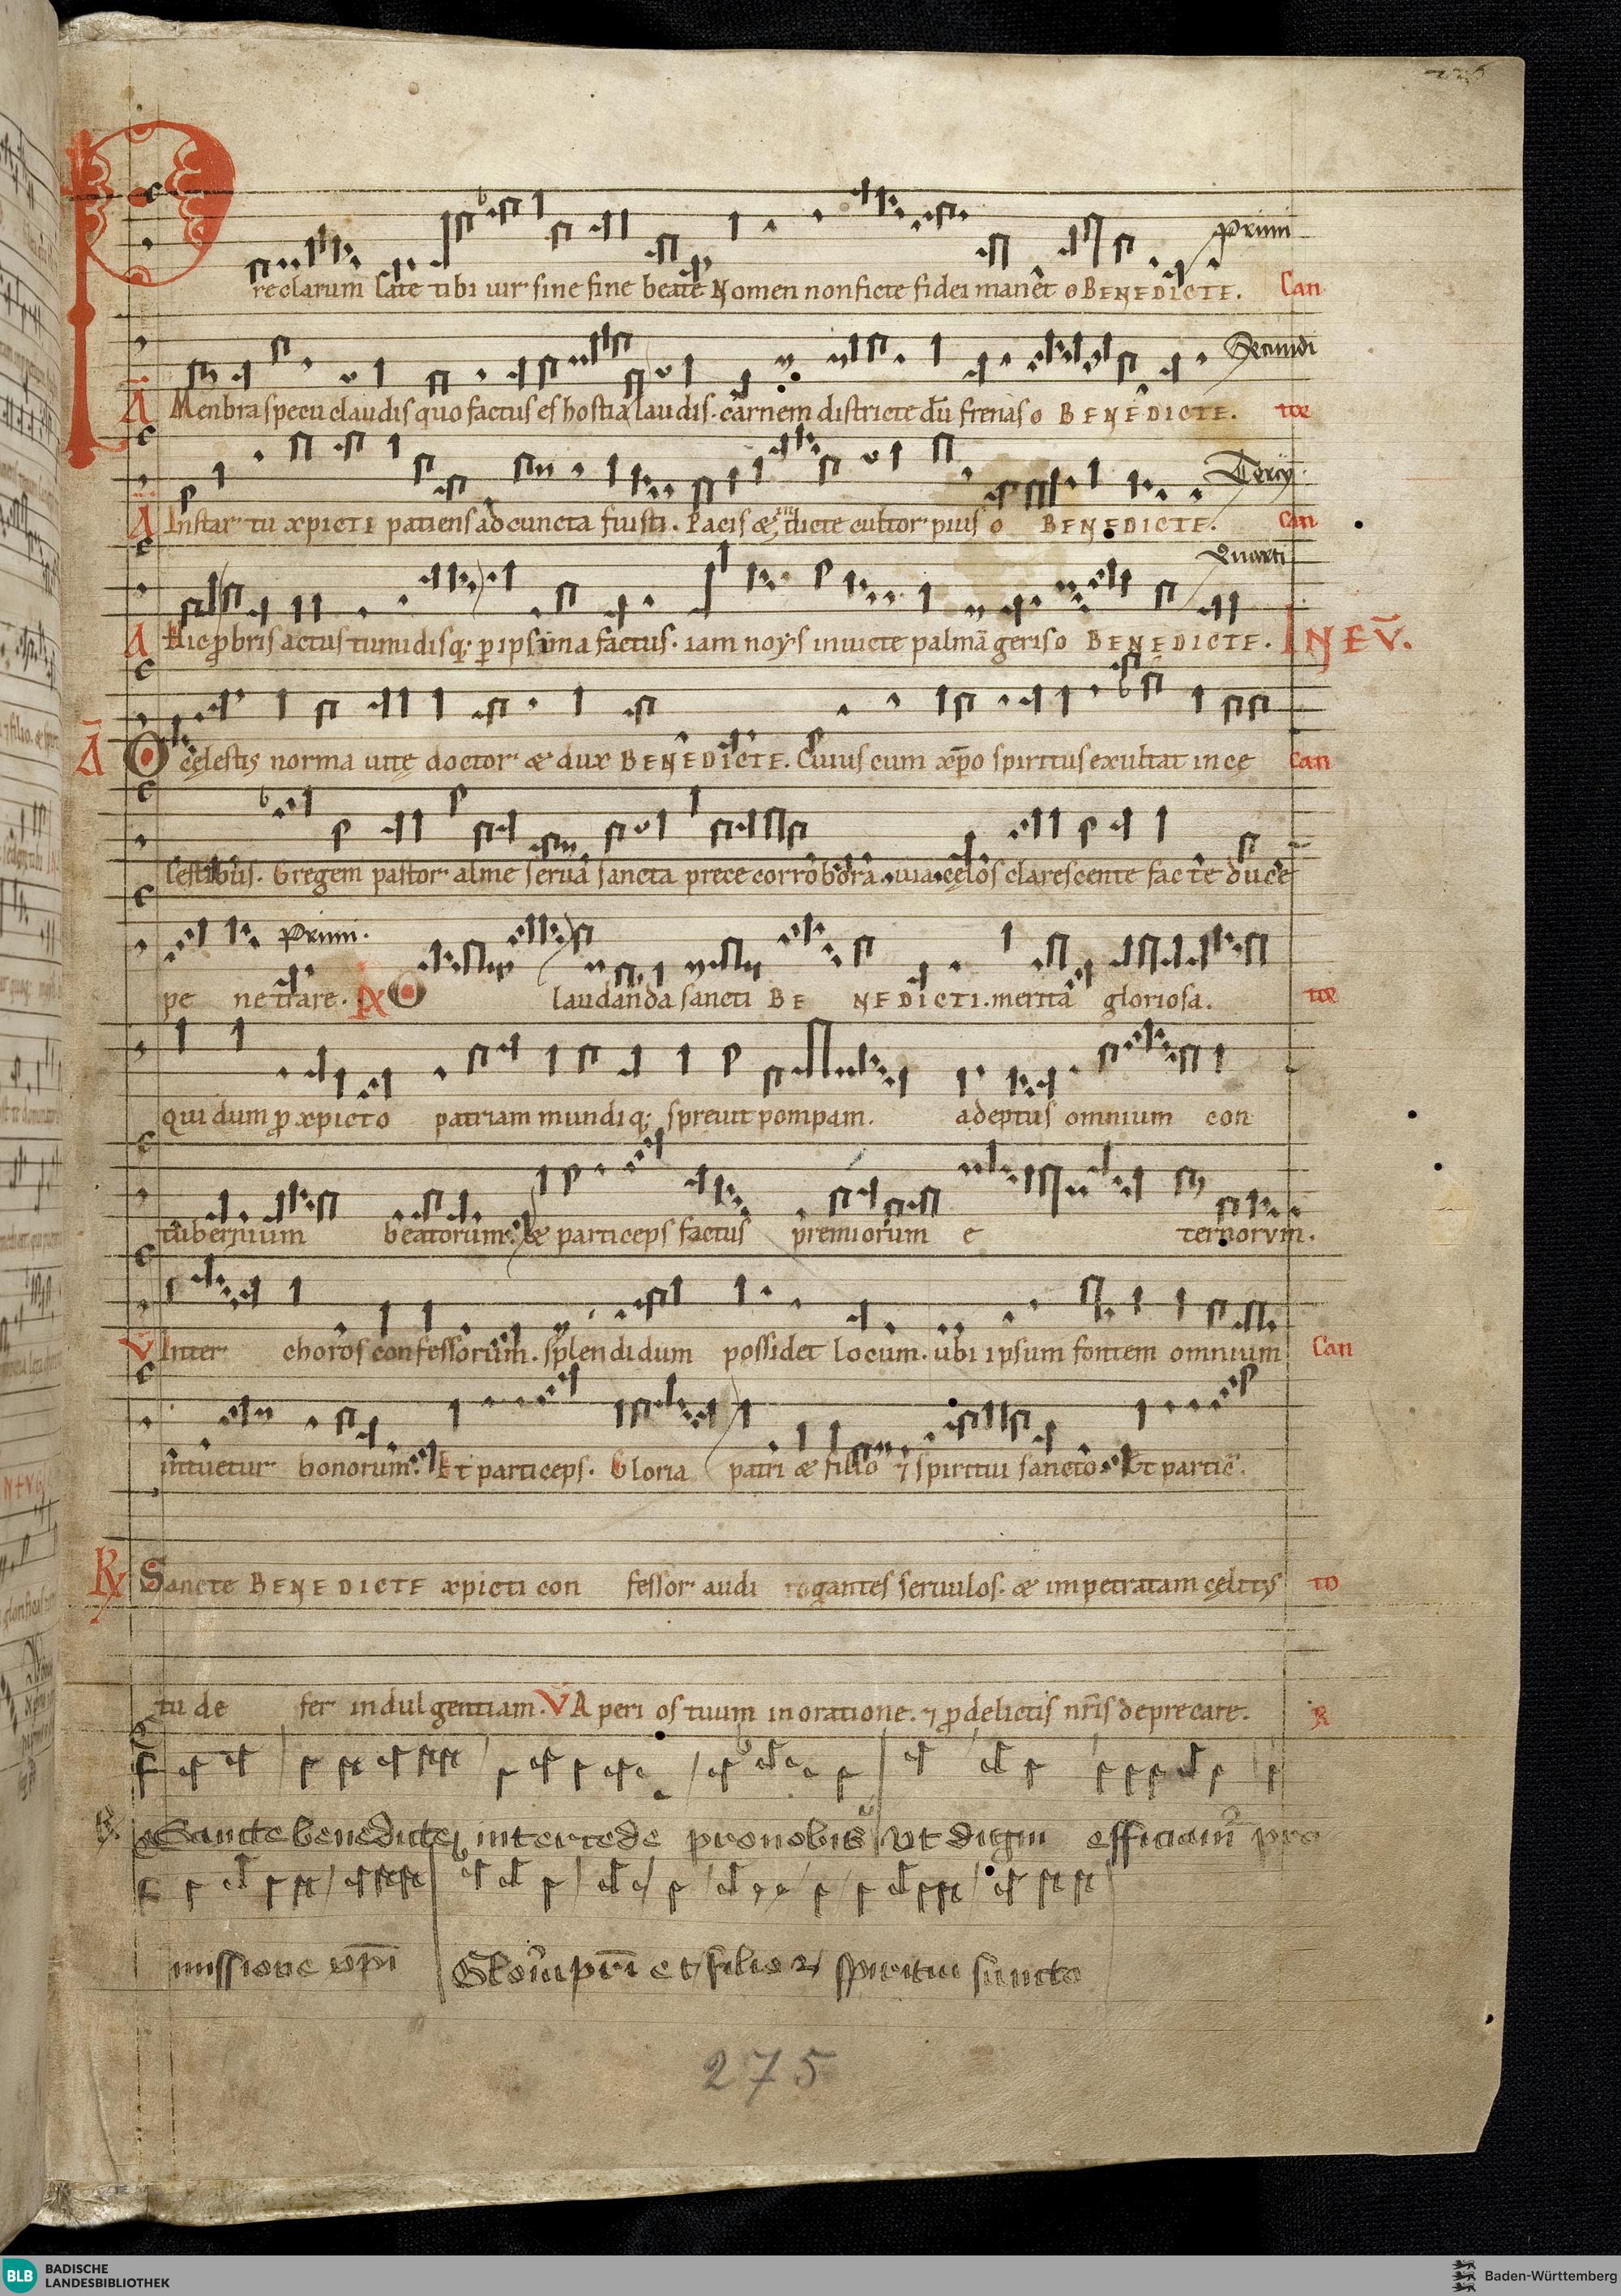 Primi
Preclarum late tibi uir sine fine beate Nomen non ficte fidei manet o BENEDICTE. Can
Secundi
A Menbra specu claudis quo factus es hostia laudis. carnem districte dū frenas o BENEDICTE. tic
Tercij
A Instar tu xpicti patiens ad cuncta fuisti. Pacis & inuicte cultor pius o BENEDICTE. Can
Quarti
A Hic ꝓbris actus tumidisq; ꝑ ipsima factus. iam nouis inuicte palmā geris o BENEDICTE. IN EV̄.
A O cęlestis norma uitę doctor & dux BENEDICTE. Cuius cum xp̄o spiritus exultat in ce Can
lestibus. Gregem pastor alme serua sancta prece corrobora. uia cęlos clarescente fac te duce
Primi.
pe netrare. R O laudanda sancti BENEDICTI. merita gloriosa. tic
qui dum ꝓ xpicto patriam mundiq; spreuit pompam. adeptus omnium con
tubernium beatorum. & particeps factus premiorum e ternorvm.
V Inter choros confessorum. splendidum possidet locum. ubi ipsum fontem omnium Can
intuetur bonorum. Et particeps. Gloria patri & filio ⁊ spiritui sancto. Et partic̄.
R Sancte BENEDICTE xpicti con fessor audi rogantes seruulos. & impetratam cęlitus to
tu de fer indulgentiam. V Aperi os tuum in oratione. ⁊ ꝓ delictis nr̄is deprecare. R
Sancte benedicte intercede pro nobis vt digni efficiam² pro
missione xp̄i Glor̄ia pr̄i et filio ⁊ spiritui sancto
275
BLB BADISCHE LANDESBIBLIOTHEK
Baden-Württemberg